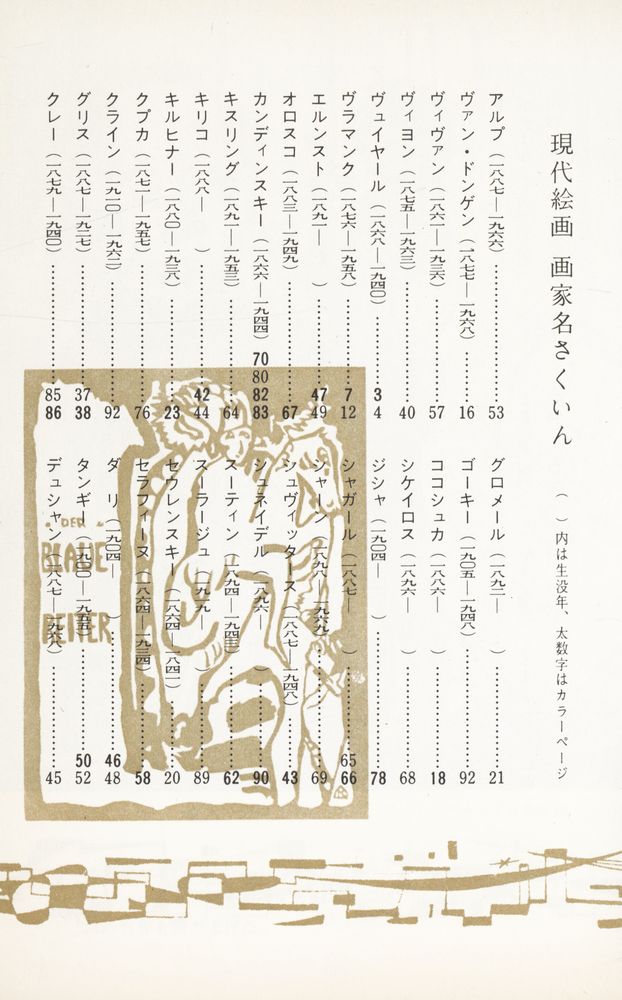 現代絵画 画家名さくいん
( )内は生没年、太数字はカラーページ
アルプ(一八八七—一九六六)………53
ヴァン・ドンゲン(一八七七—一九六八)………16
ヴィヴァン(一八六一—一九三六)………57
ヴィヨン(一八七五—一九六三)………40
ヴュイヤール(一八六八—一九四〇)………3 4
ヴラマンク(一八七六—一九五八)………7 12
エルンスト(一八九一— )………47 49
オロスコ(一八八三—一九四九)………67
カンディンスキー(一八六六—一九四四)70 80 82 83
キスリング(一八九一—一九五三)………64
キリコ(一八八八— )………42 44
キルヒナー(一八八〇—一九三八)………23
クプカ(一八七一—一九五七)………76
クライン(一九一〇—一九六二)………92
グリス(一八八七—一九二七)………37 38
クレー(一八七九—一九四〇)………85 86
グロメール(一八九二— )………21
ゴーキー(一九〇五—一九四八)………92
ココシュカ(一八八六— )………18
シケイロス(一八九六— )………68
ジシャ(一九〇四— )………78
シャガール(一八八七— )………65 66
シャーン(一八九八—一九六九)………69
シュヴィッタース(一八八七—一九四八)………43
シュネイデル(一八九六— )………90
スーティン(一八九四—一九四三)………62
スーラージュ(一九一九— )………89
セウレンスキー(一八六四—一八四一)………20
セラフィーヌ(一八六四—一九三四)………58
ダリ(一九〇四— )………46 48
タンギー(一九〇〇—一九五五)………50 52
デュシャン(一八八七—一九六八)………45
DER
BLAUE
REITER